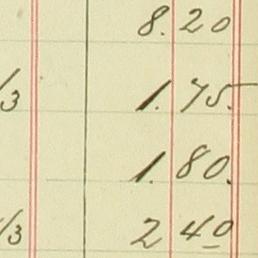 8.20
/3 1.75.
1.80.
/3 2 40